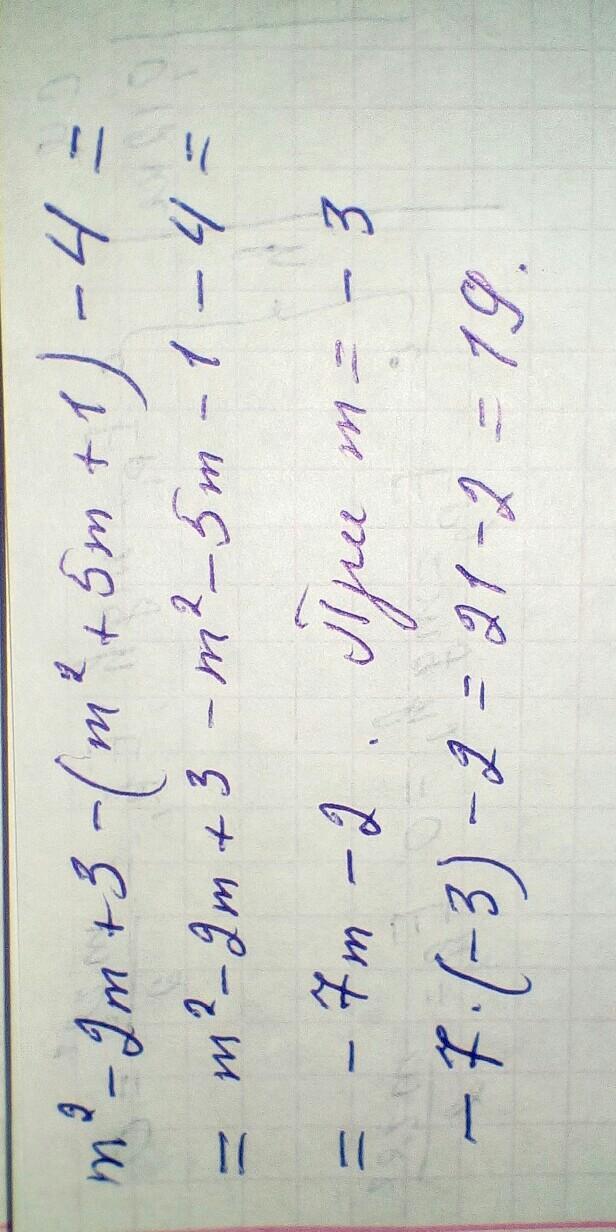 m² - 2m + 3 - (m² + 5m + 1) - 4 =
= m² - 2m + 3 - m² - 5m - 1 - 4 =
= - 7m - 2. При m = - 3
- 7 · (-3) - 2 = 21 - 2 = 19.